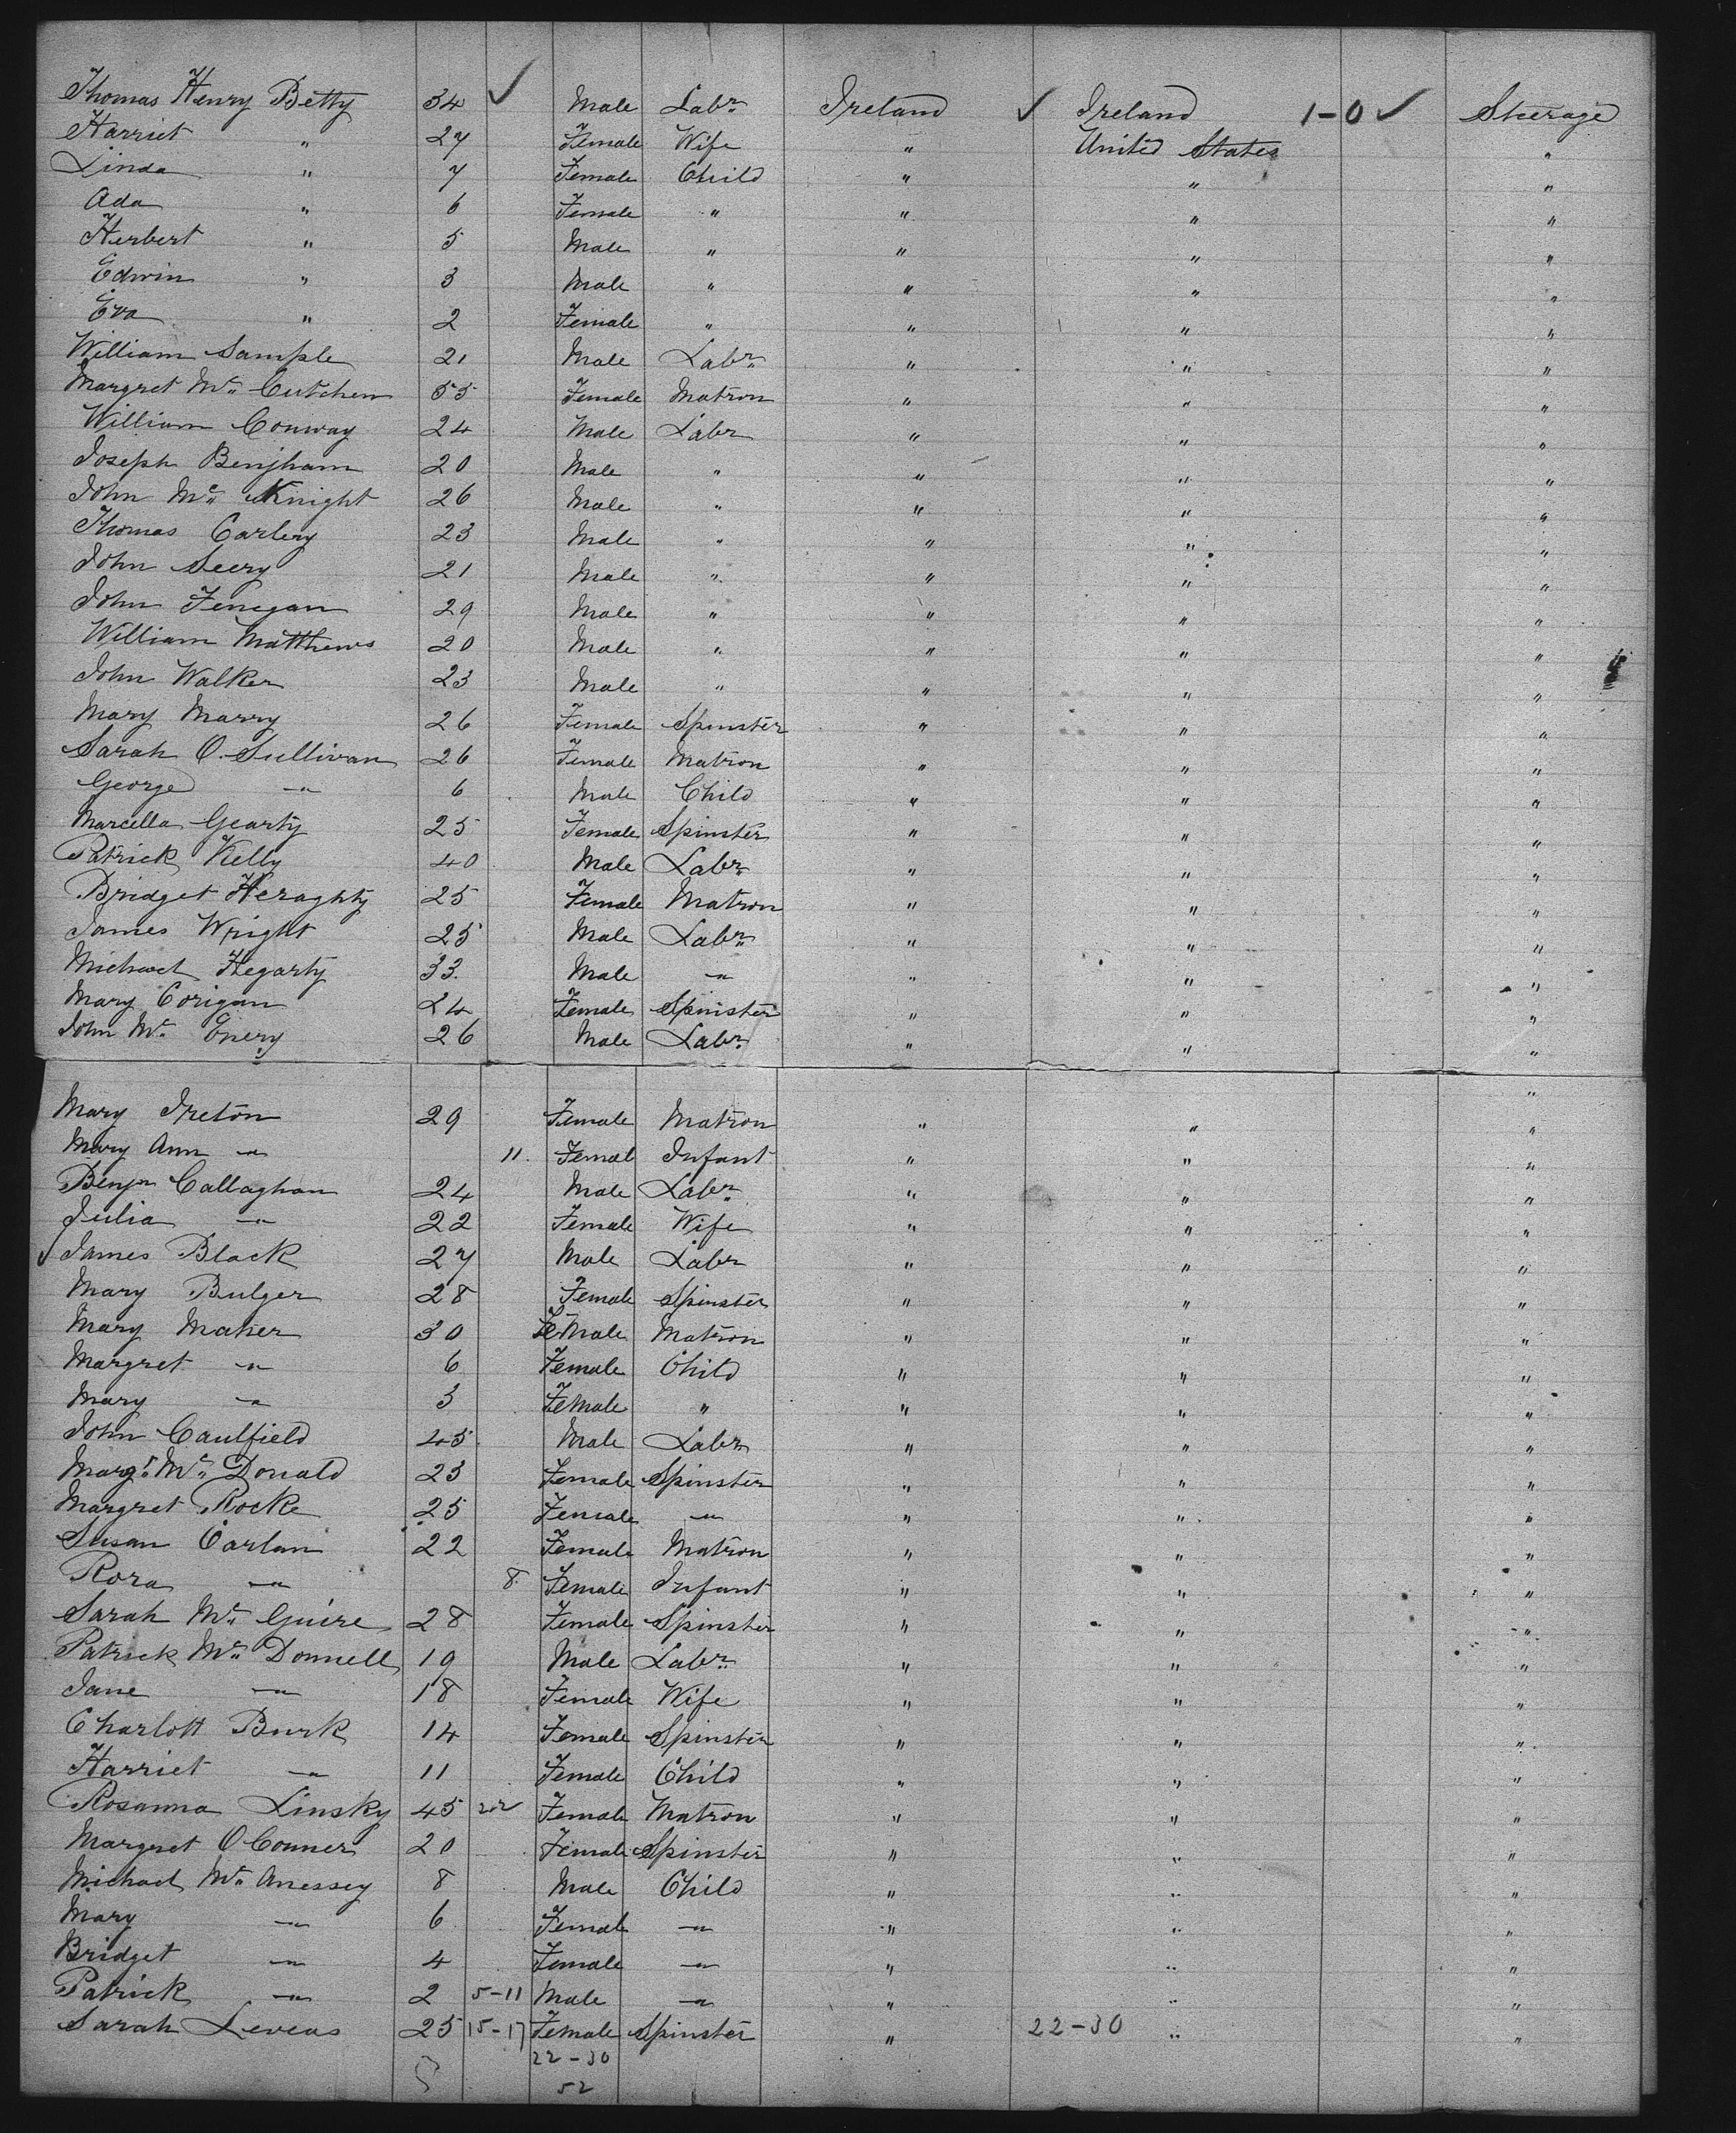 Thomas Henry Betty 34 ✓ Male Labr Ireland ✓ Ireland 1-0 ✓ Steerage
Harriet " 27 Female Wife " United States "
Linda " 7 Female Child " " "
Ada " 6 Female " " " "
Herbert " 5 Male " " " "
Edwin " 3 Male " " " "
Eva " 2 Female " " " "
William Sample 21 Male Labr " " "
Margret Mc Cutchen 55 Female Matron " " "
William Conway 24 Male Labr " " "
Joseph Benjham 20 Male " " " "
John Mc Knight 26 Male " " " "
Thomas Carlery 23 Male " " " "
John Seery 21 Male " " " "
John Fenegan 29 Male " " " "
William Matthews 20 Male " " " "
John Walker 23 Male " " " "
Mary Marry 26 Female Spinster " " "
Sarah O. Sullivan 26 Female Matron " " "
George " 6 Male Child " " "
Marcella Gearty 25 Female Spinster " " "
Patrick Kelly 40 Male Labr " " "
Bridget Heraghty 25 Female Matron " " "
James Wright 25 Male Labr " " "
Michael Hegarty 33 Male " " " "
Mary Corigan 24 Female Spinster " " "
John Mc Enery 26 Male Labr " " "
"
Mary Ireton 29 Female Matron " " "
Mary Ann " 11 Femal Infant " " "
Benjn Callaghan 24 Male Labr " " "
Julia " 22 Female Wife " " "
James Black 27 Male Labr " " "
Mary Bulger 28 Female Spinster " " "
Mary Maher 30 FeMale Matron " " "
Margret " 6 Female Child " " "
Mary " 3 FeMale " " " "
John Caulfield 45 Male Labr " " "
Margt Mc Donald 23 Female Spinster " " "
Margret Rocke 25 Female " " " "
Susan Carlan 22 Female Matron " " "
Rora " 8 Female Infant " " "
Sarah Mc Guire 28 Female Spinster " " "
Patrick Mc Donnell 19 Male Labr " " "
Jane " 18 Female Wife " " "
Charlott Burk 14 Female Spinster " " "
Harriet " 11 Female Child " " "
Rosanna Linsky 45 Female Matron " " "
Margret O Conner 20 Female Spinster " " "
Michael Mc Anessey 8 Male Child " " "
Mary " 6 Female " " " "
Bridget " 4 Female " " " "
Patrick " 2 5-11 Male " " " "
Sarah Leveas 25 15-17 Female Spinster " 22-30 " "
22-30
52